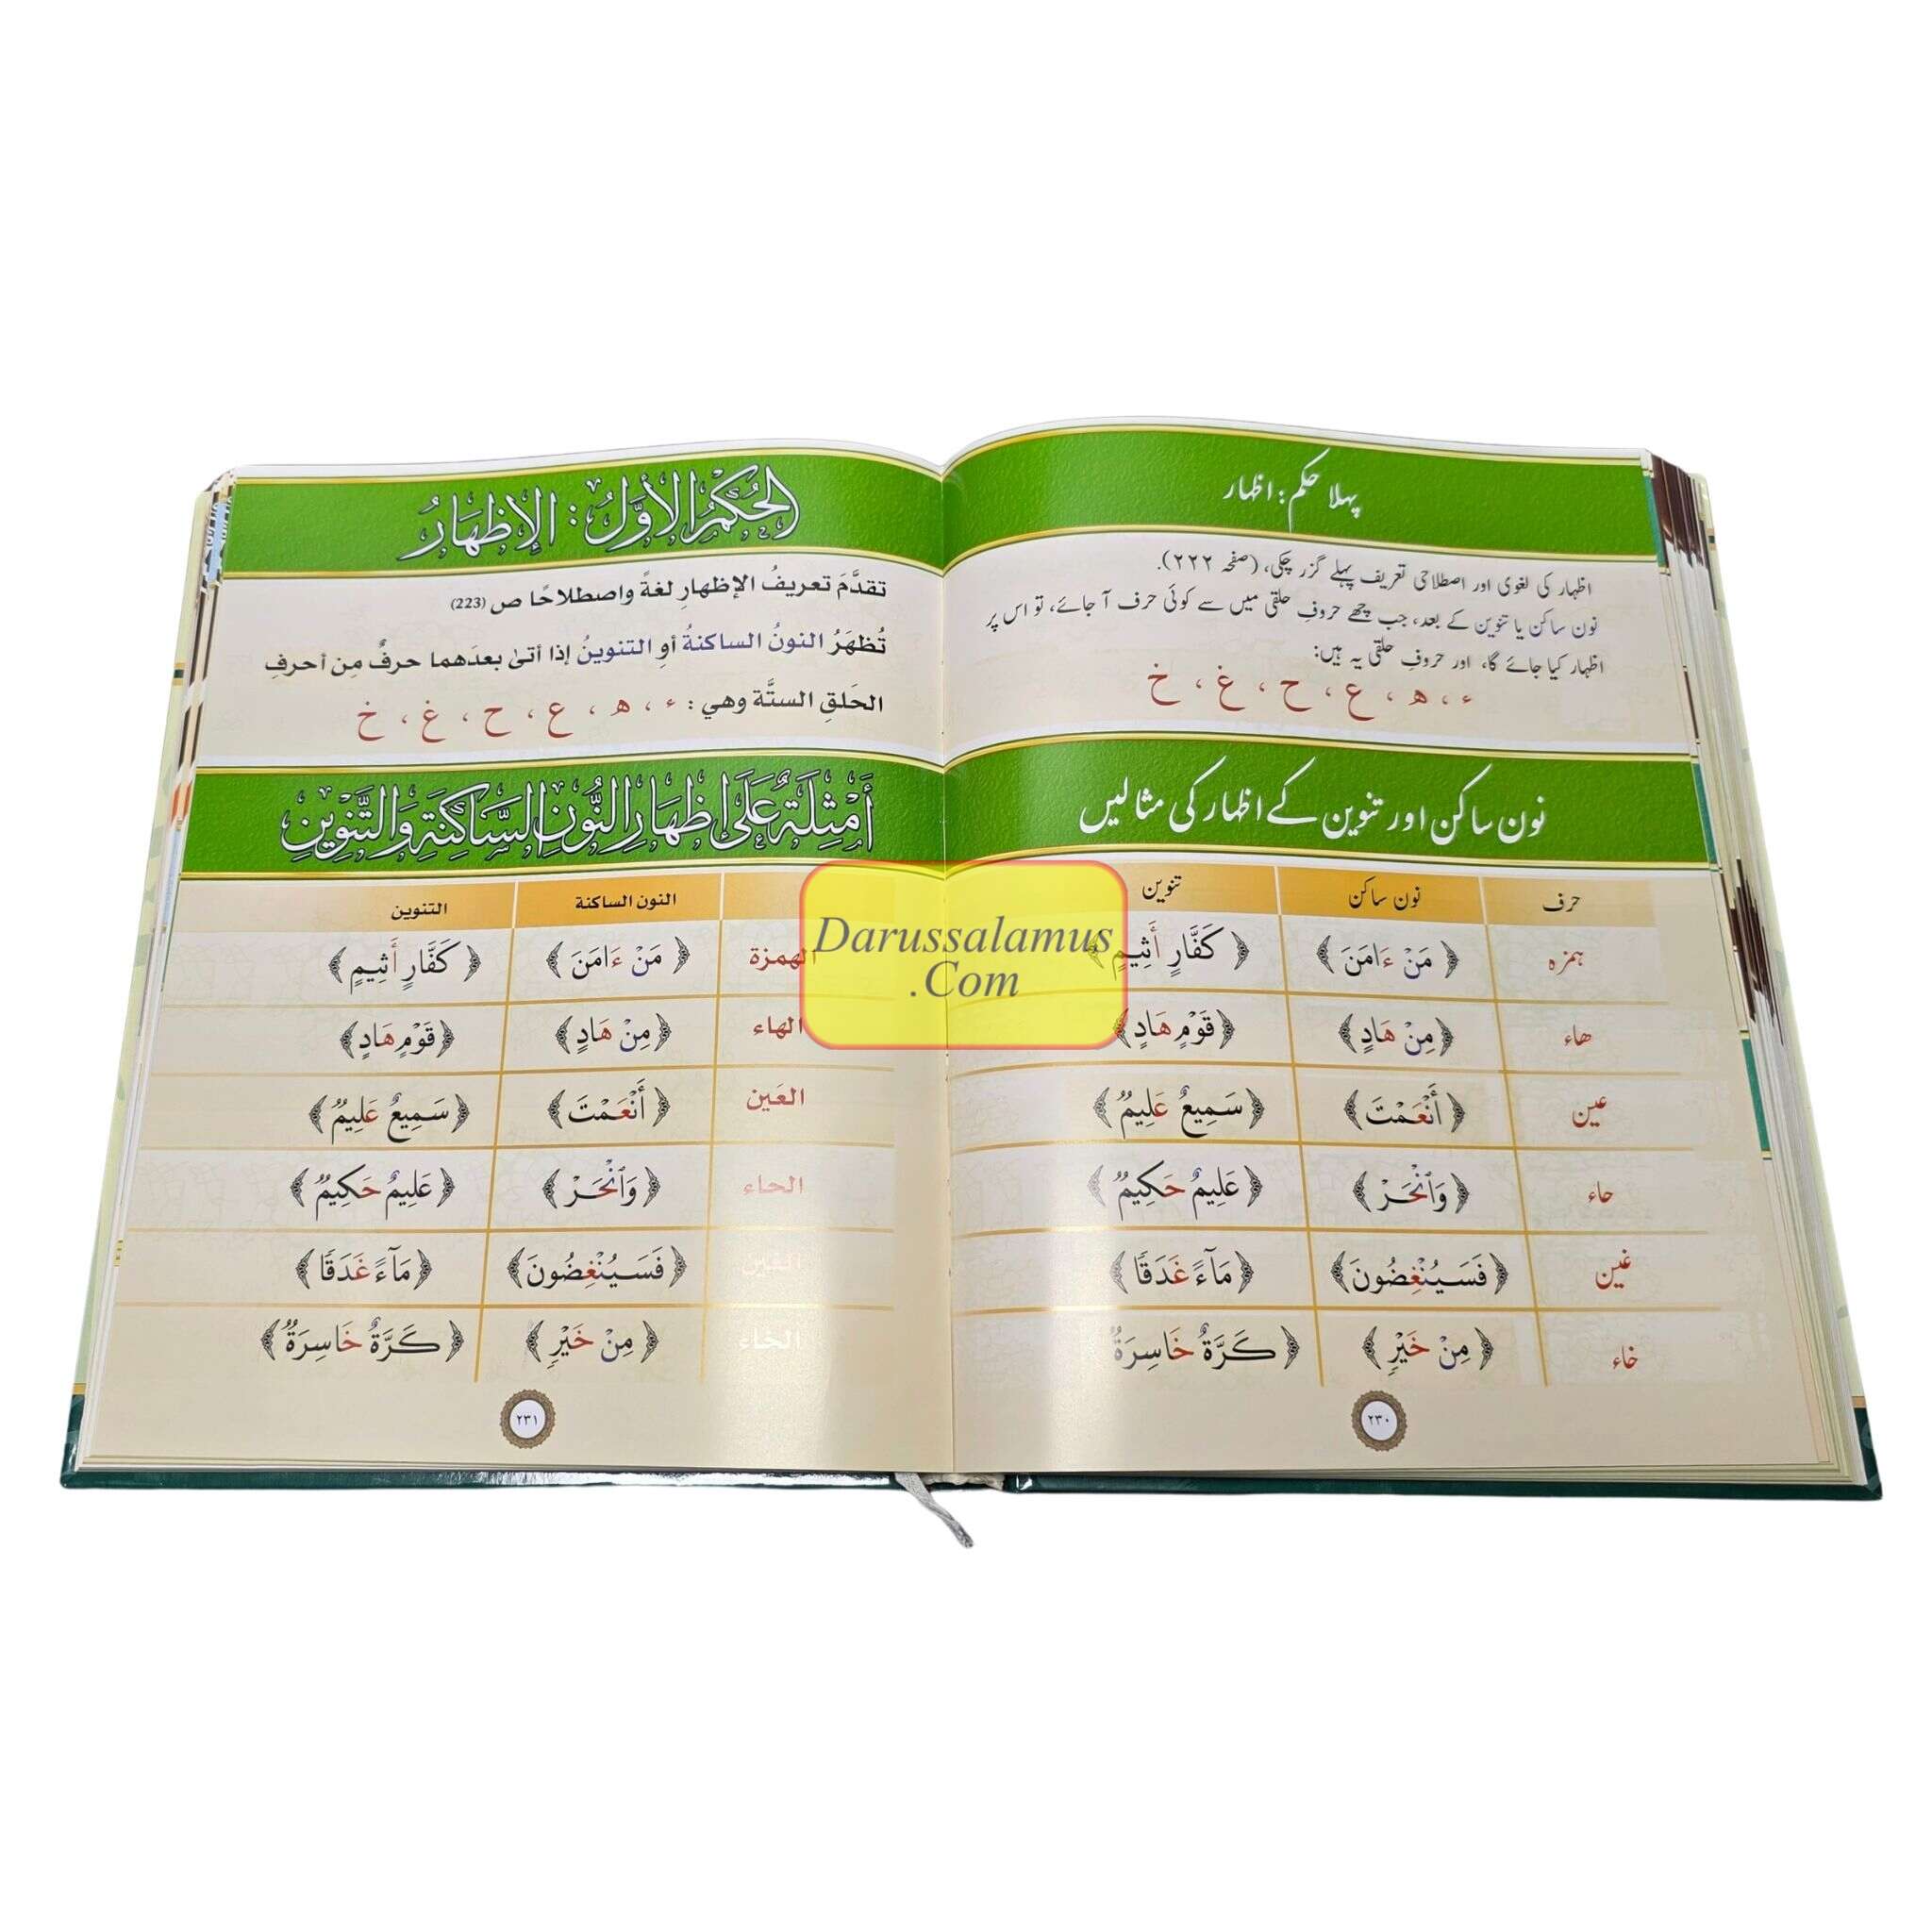 پہلا حکم: اظہار
اظہار کی لغوی اور اصطلاحی تعریف پہلے گزر چکی، (صفحہ ۲۲۲).
نون ساکن یا تنوین کے بعد، جب چھے حروفِ حلقی میں سے کوئی حرف آ جائے، تو اس پر
اظہار کیا جائے گا، اور حروفِ حلقی یہ ہیں:
ء ، ھ ، ع ، ح ، غ ، خ
نون ساکن اور تنوین کے اظہار کی مثالیں
حرف نون ساکن تنوین
ہمزہ ﴿مَنْ ءَامَنَ﴾ ﴿كَفَّارٍ أَثِيمٍ﴾
هاء ﴿مِنْ هَادٍ﴾ ﴿قَوْمٍ هَادٍ﴾
عین ﴿أَنْعَمْتَ﴾ ﴿سَمِيعٌ عَلِيمٌ﴾
حاء ﴿وَٱنْحَرْ﴾ ﴿عَلِيمٌ حَكِيمٌ﴾
غین ﴿فَسَيُنْغِضُونَ﴾ ﴿مَآءً غَدَقًا﴾
خاء ﴿مِنْ خَيْرٍ﴾ ﴿كَرَّةٌ خَاسِرَةٌ﴾
٢٣٠
الحُكْمُ الأَوَّلُ: الإِظْهَارُ
تقدَّمَ تعريفُ الإظهارِ لغةً واصطلاحًا ص (223)
تُظهَرُ النونُ الساكنةُ أوِ التنوينُ إذا أتىٰ بعدَهما حرفٌ مِن أحرفِ
الحَلقِ الستَّة وهي: ء ، ھ ، ع ، ح ، غ ، خ
أَمْثِلَةٌ عَلَى إِظْهَارِ النُّونِ السَّاكِنَةِ وَالتَّنْوِينِ
النون الساكنة التنوين
الهمزة ﴿مَنْ ءَامَنَ﴾ ﴿كَفَّارٍ أَثِيمٍ﴾
الهاء ﴿مِنْ هَادٍ﴾ ﴿قَوْمٍ هَادٍ﴾
العَين ﴿أَنْعَمْتَ﴾ ﴿سَمِيعٌ عَلِيمٌ﴾
الحاء ﴿وَٱنْحَرْ﴾ ﴿عَلِيمٌ حَكِيمٌ﴾
الغَين ﴿فَسَيُنْغِضُونَ﴾ ﴿مَآءً غَدَقًا﴾
الخاء ﴿مِنْ خَيْرٍ﴾ ﴿كَرَّةٌ خَاسِرَةٌ﴾
٢٣١
Darussalamus
.Com